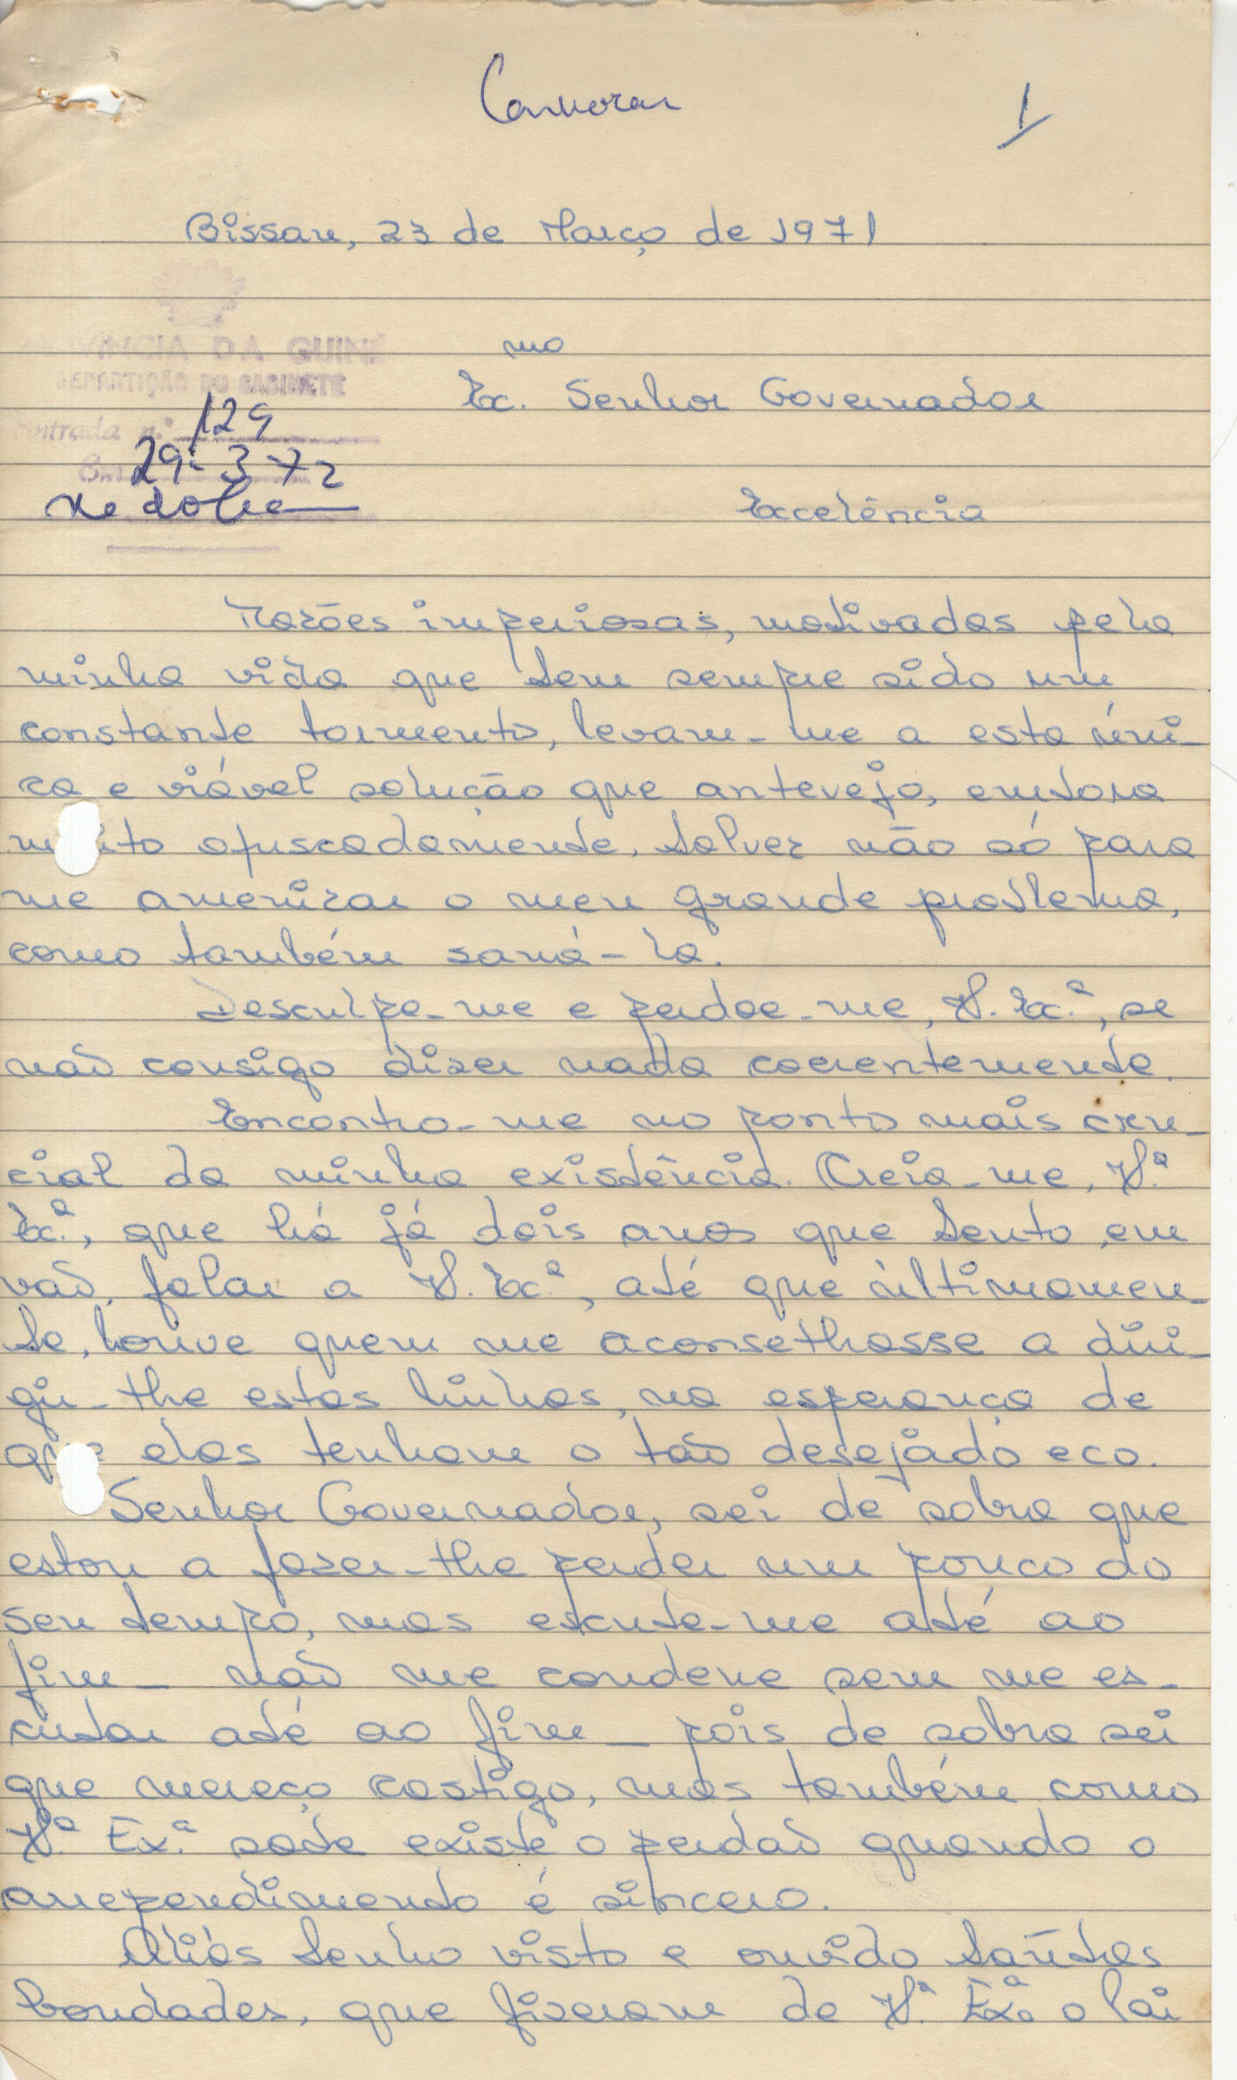 1
Bissau, 23 de Março de 1971
PROVÍNCIA DA GUINÉ
REPARTIÇÃO DO GABINETE
Entrada n.º 129
Em 29-3-72
mo
Ex. Senhor Governador
Excelência
Razões imperiosas, motivadas pela
minha vida que tem sempre sido um
constante tormento, levam-me a esta úni-
ca e viável solução que antevejo, embora
muito ofuscadamente, talvez não só para
me amenizar o meu grande problema,
como também saná-lo.
Desculpe-me e perdoe-me, V. Ex.ª, se
não consigo dizer nada coerentemente.
Encontro-me no ponto mais cru-
cial da minha existência. Creia-me, V.ª
Ex.ª, que há já dois anos que tento, em
vão, falar a V. Ex.ª, até que ùltimamen-
te, houve quem me aconselhasse a diri-
gir-lhe estas linhas, na esperança de
que elas tenham o tão desejado eco.
Senhor Governador, sei de sobra que
estou a fazer-lhe perder um pouco do
seu tempo, mas escute-me até ao
fim - não me condene sem me es-
cutar até ao fim - pois de sobra sei
que mereço castigo, mas também como
V.ª Ex.ª sabe existe o perdão quando o
arrependimento é sincero.
Aliás tenho visto e ouvido tantas
bondades, que fizeram de V.ª Ex.ª o Pai